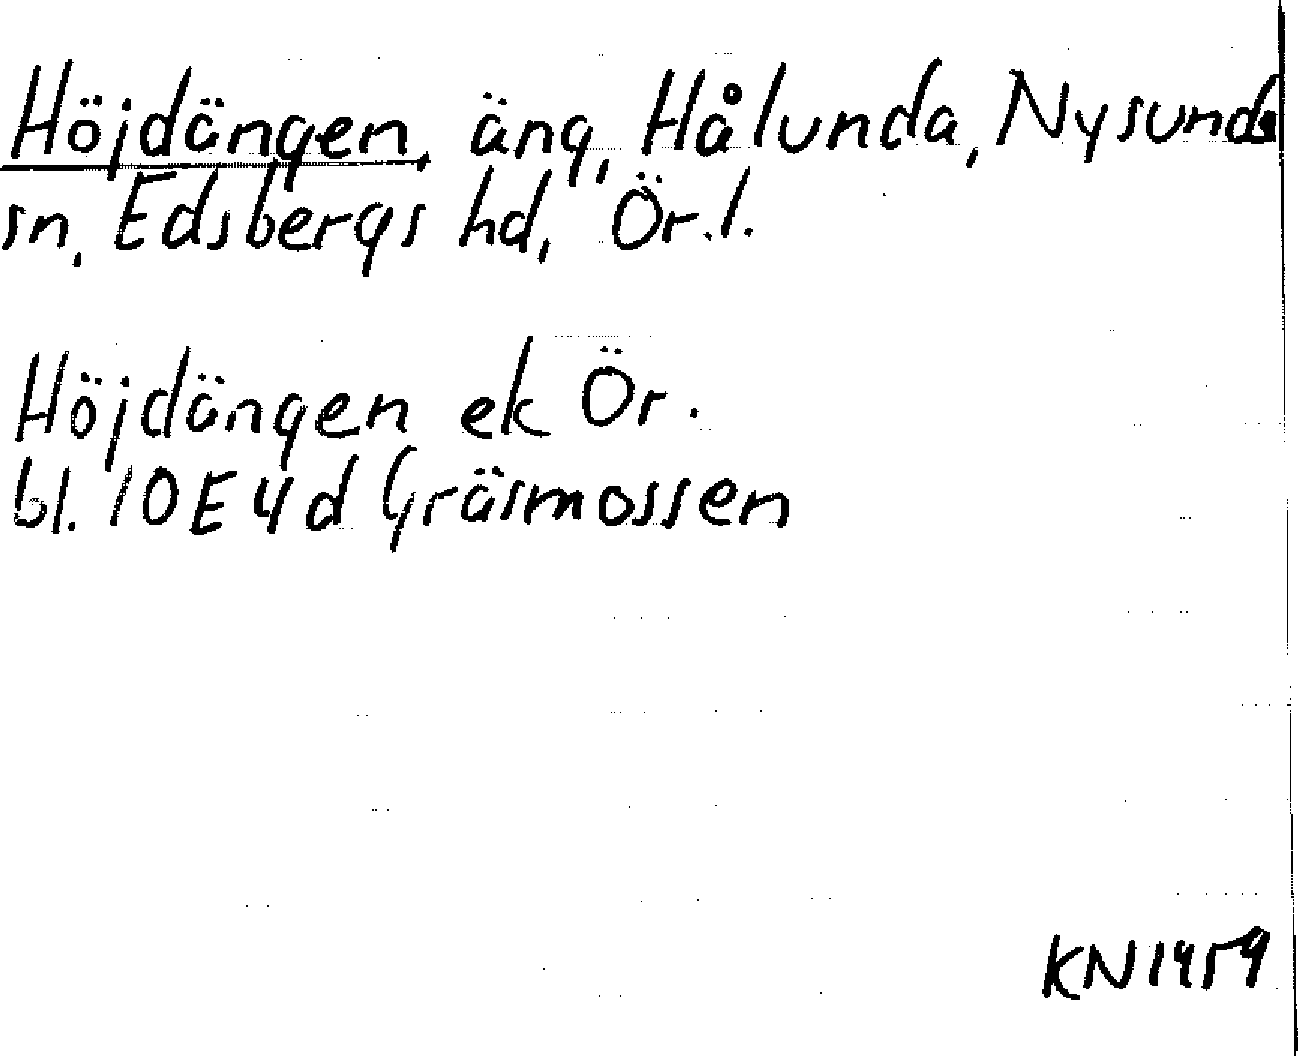 Höjdängen, äng, Hålunda, Nysunds
sn, Edsbergs hd, Ör.l.
Höjdängen ek Ör.
bl. 10E4d Gräsmossen
KN 1959